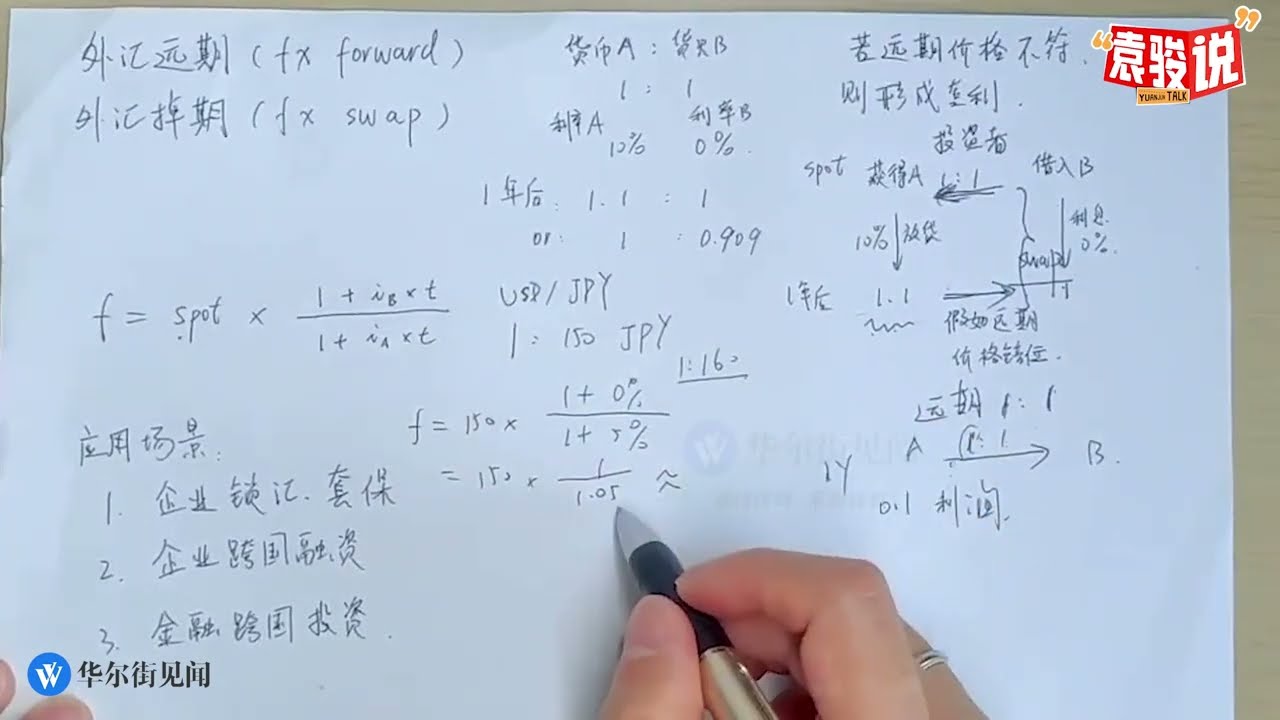 外汇远期 (fx forward)
外汇掉期 (fx swap)
货币A : 货币B
1 : 1
利率A 利率B
10% 0%.
1年后: 1.1 : 1
or: 1 : 0.909
f = spot × (1 + i_B × t) / (1 + i_A × t)
USD/JPY
1: 150 JPY
1:160
f = 150 × (1 + 0%) / (1 + 5%)
= 150 × 1 / 1.05 ≈
应用场景:
1. 企业锁汇、套保
2. 企业跨国融资
3. 金融跨国投资.
若远期价格不符,
则形成套利.
投资者
spot 获得A 1:1 借入B
10% 放贷 swap 利息 0%.
1年后 1.1
假如远期
价格错位.
远期 1:1
A 1:1 B.
1Y
0.1 利润.
“袁骏说”
YUANJUN TALK
华尔街见闻
华尔街见闻